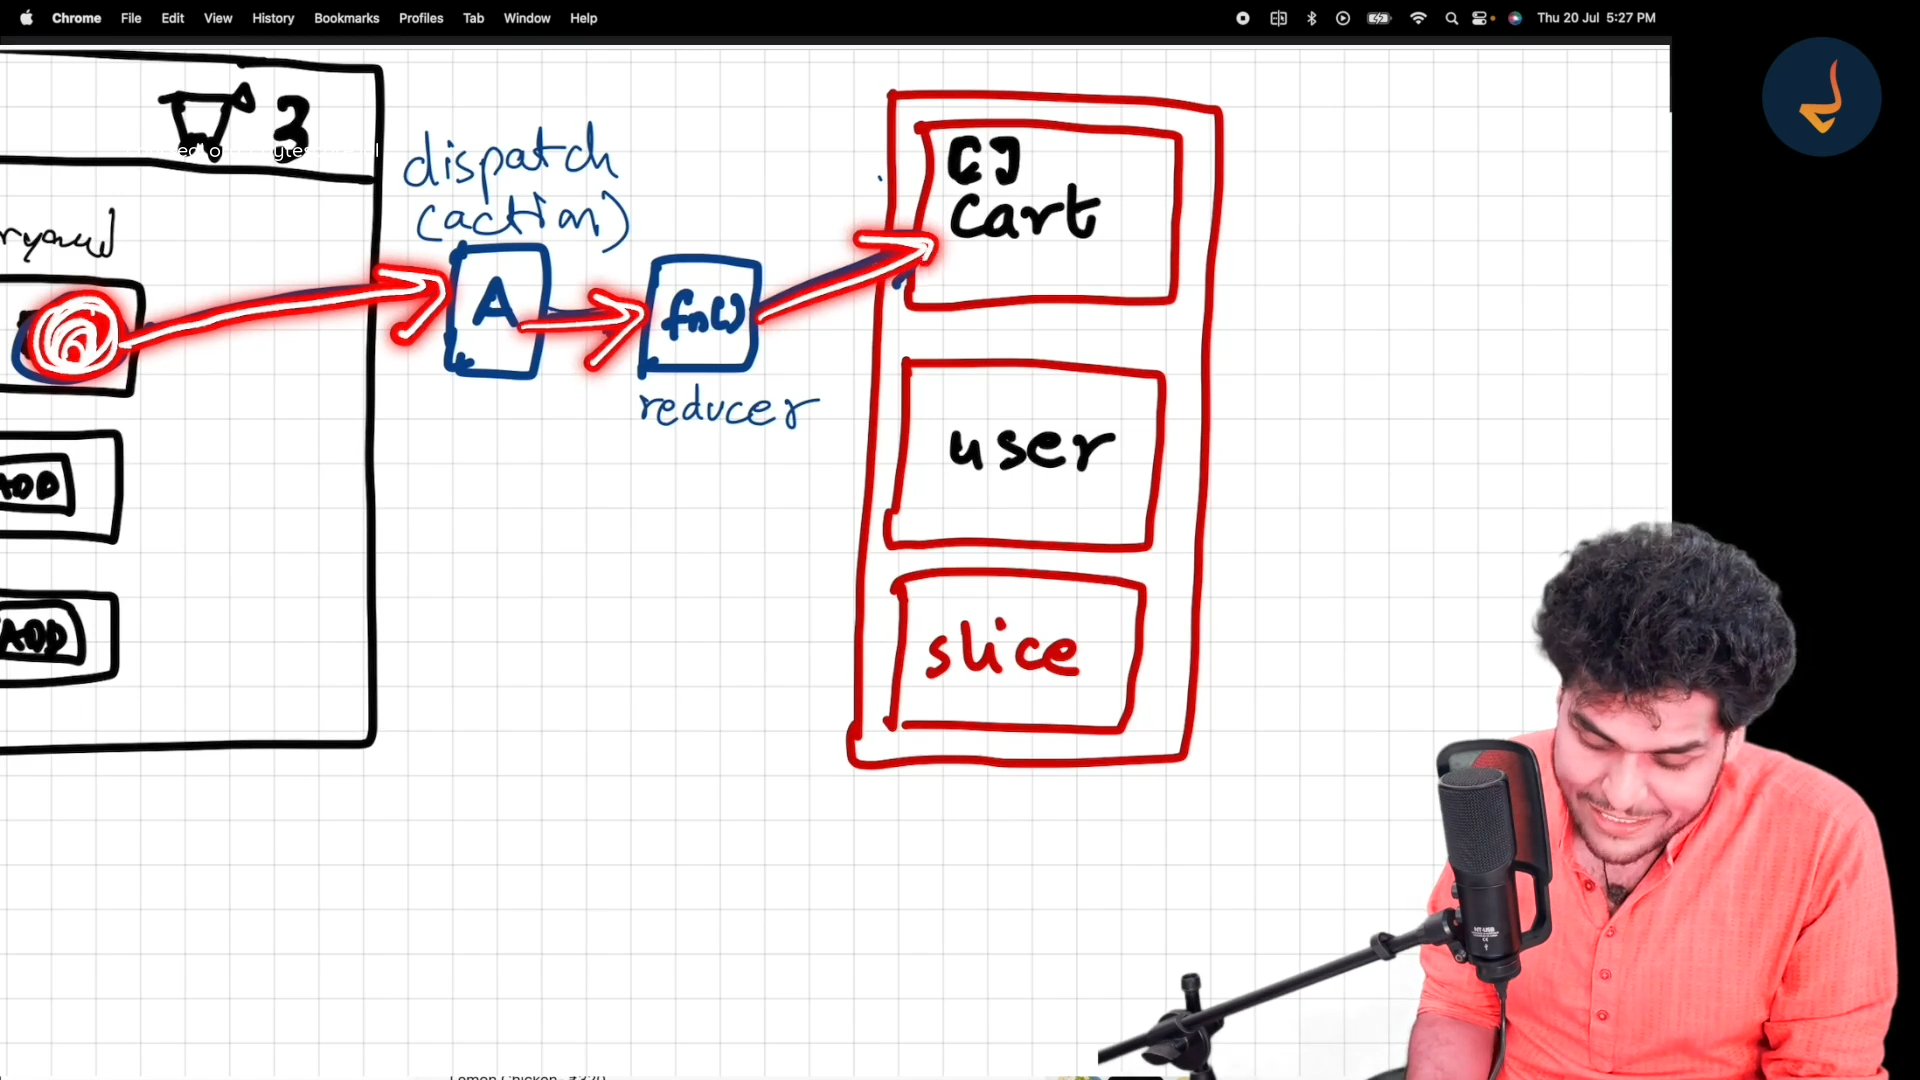 Chrome File Edit View History Bookmarks Profiles Tab Window Help Thu 20 Jul 5:27 PM
3
dispatch
(action)
[]
Cart
A
fn()
reducer
user
ADD
slice
ADD
NT-USB
Lemon Chicken - ₹320